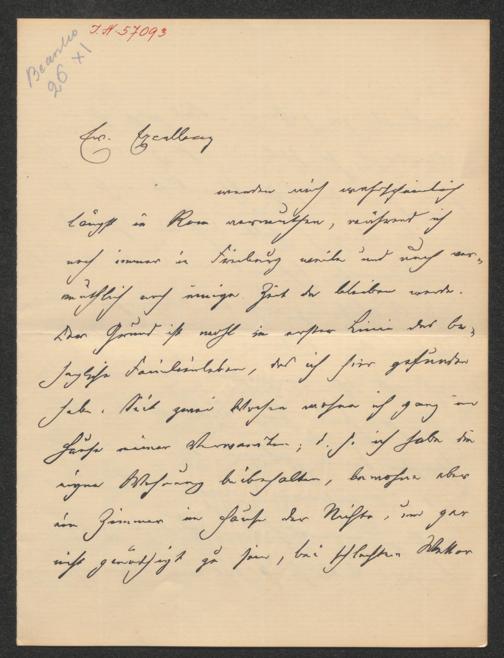 I.N. 57093
26 XI
Ew. Excellenz
werden mich wahrscheinlich
längst in Rom vermuthen, während ich
noch immer in Freiburg weile und auch ver-
muthlich noch einige Zeit da bleiben werde.
Der Grund ist wohl in erster Linie das be-
hagliche Familienleben, das ich hier gefunden
habe. Seit zwei Wochen wohne ich ganz im
Hause meiner Verwandten; d. h. ich habe die
eigne Wohnung beibehalten, bewohne aber
ein Zimmer im Hause der Nichte, um gar
nicht genöthigt zu sein, bei schlechtem Wetter